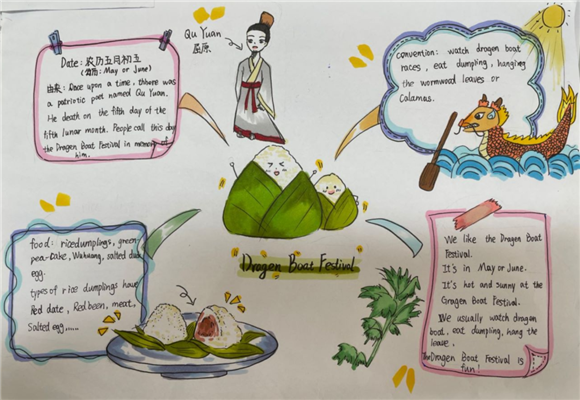 Date: 农历五月初五
(公历: May or June)
由来: Once upon a time, thhere was
a patriotic poet named Qu Yuan.
He death on the fifth day of the
fifth lunar month. People call this day
the Dragon Boat Festival in memory of
him.
Qu Yuan
屈原
convention: watch dragon boat
races, eat dumpling, hanging
the wormwood leaves or
Calamas.
Dragen Boat Festival
food: ricedumplings, green
pea-cake, salted duck
egg.
types of rice dumplings have
Red date, Red bean, meat,
Salted egg......
We like the Dragon Boat
Festival.
It's in May or June.
It's hot and sunny at the
Gragon Boat Festival.
We usually watch dragon
boat, eat dumpling, hang the
leave.
The Dragon Boat Festival is
fun!